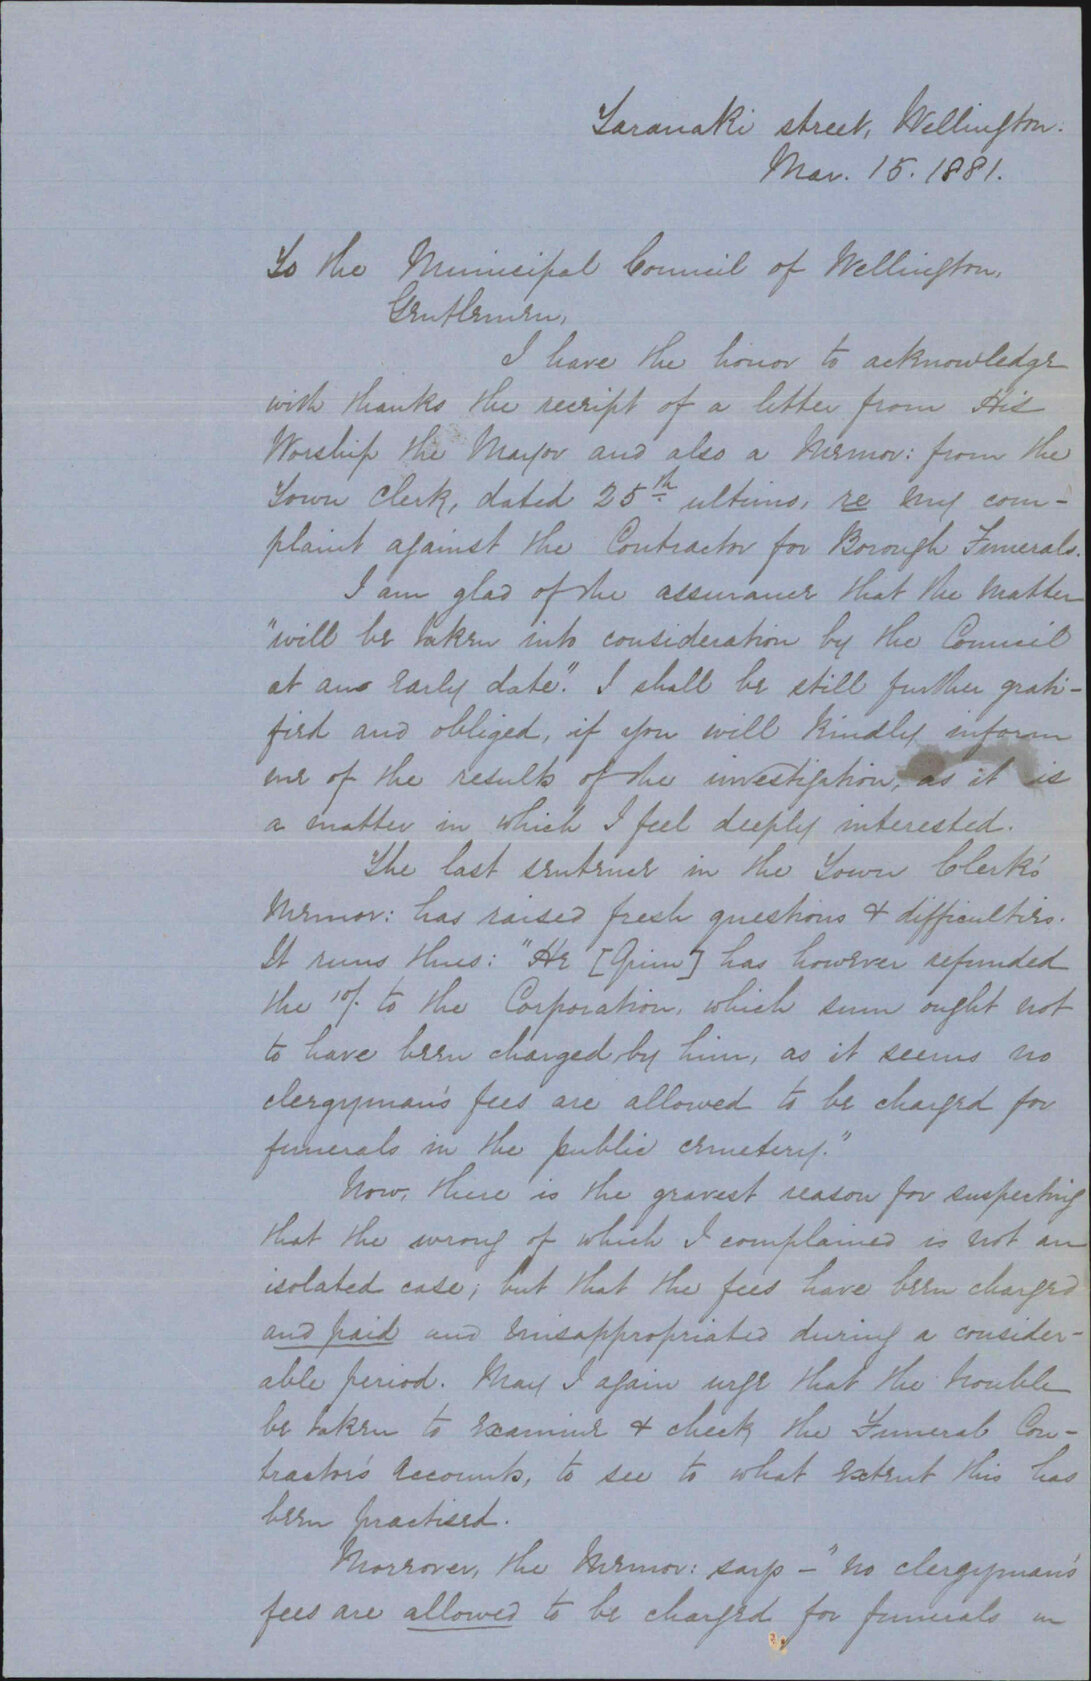 Taranaki street, Wellington.
Mar. 15. 1881.
To the Municipal Council of Wellington,
Gentlemen,
I have the honor to acknowledge
with thanks the receipt of a letter from His
Worship the Mayor and also a Memor: from the
Town Clerk, dated 25th ultimo, re my com-
plaint against the Contractor for Borough Funerals.
I am glad of the assurance that the matter
"will be taken into consideration by the Council
at an early date." I shall be still further grati-
fied and obliged, if you will kindly inform
me of the results of the investigation, as it is
a matter in which I feel deeply interested.
The last sentence in the Town Clerk's
Memor: has raised fresh questions & difficulties.
It runs thus: "He [] has however refunded
the 10/- to the Corporation, which sum ought not
to have been charged by him, as it seems no
clergyman's fees are allowed to be charged for
funerals in the public cemetery."
Now, there is the gravest reason for suspecting
that the wrong of which I complained is not an
isolated case; but that the fees have been charged
and paid and misappropriated during a consider-
able period. May I again urge that the trouble
be taken to examine & check the Funeral Con-
tractor's accounts, to see to what extent this has
been practised.
Moreover, the Memor: says - "no clergyman's
fees are allowed to be charged for funerals in